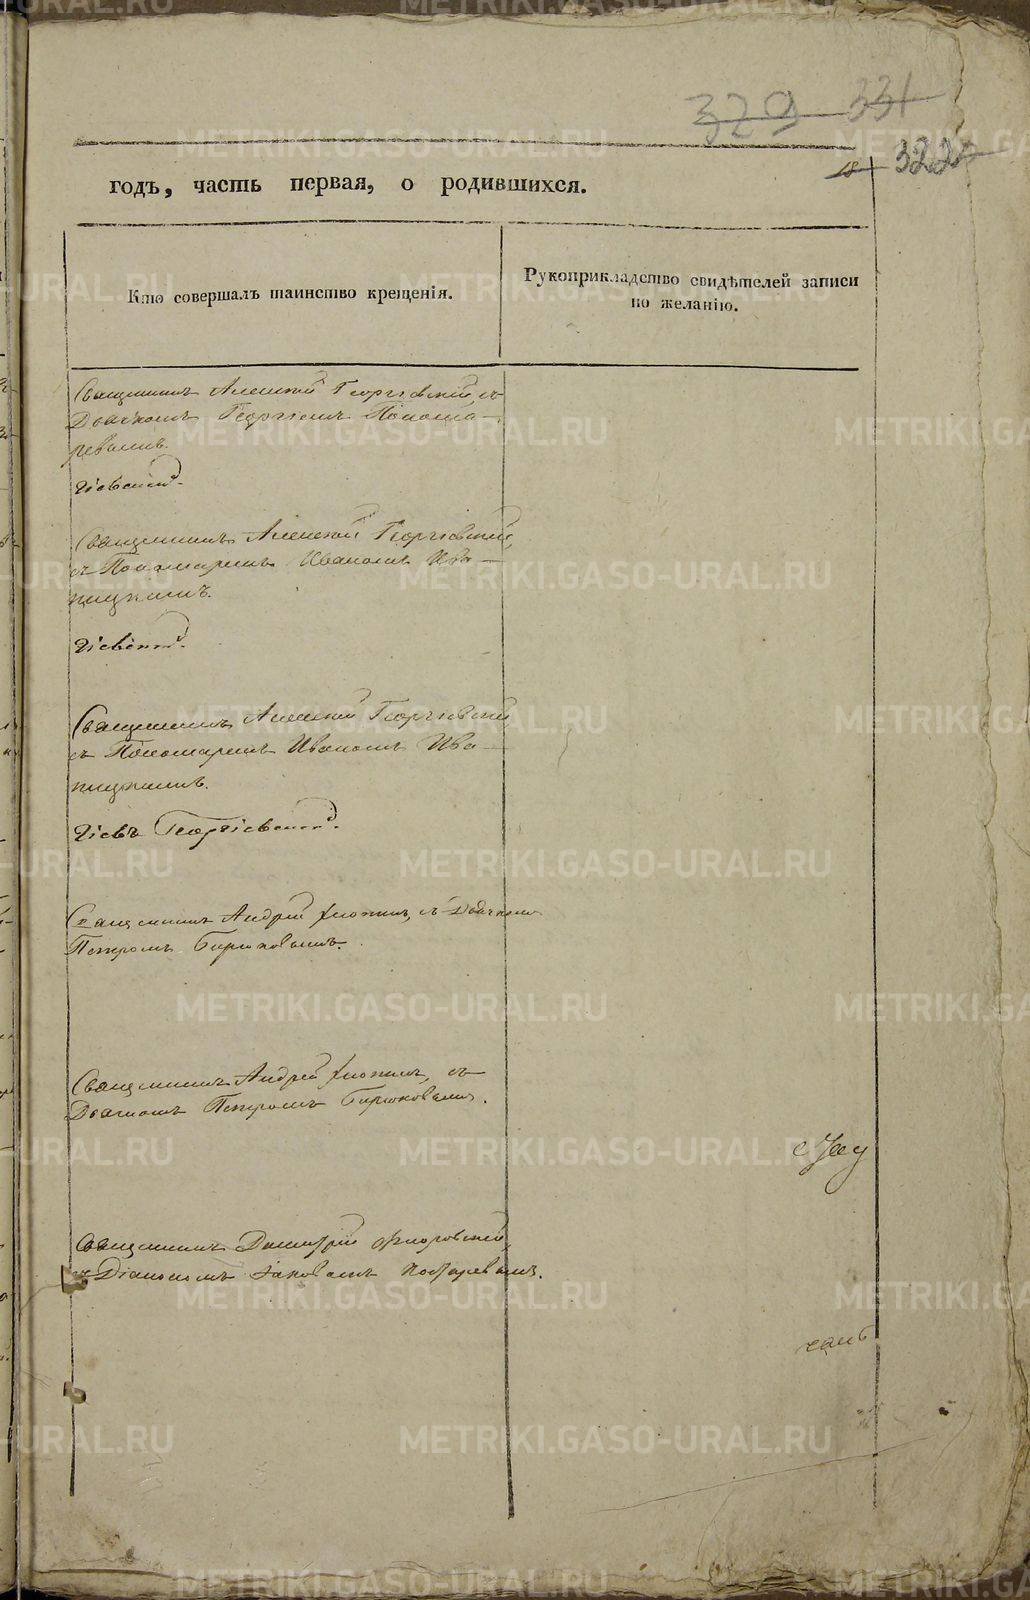 329 331
18 322
годъ, часть первая, о родившихся.
Кто совершалъ таинство крещенія.
Рукоприкладство свидѣтелей записи
по желанію.
Священникъ Алексѣй Георгіевскій, съ
Дьячкомъ Георгіемъ Понома-
ревымъ.
Священникъ Алексѣй Георгіевскій,
съ Пономаремъ Иваномъ Ива-
ницкимъ.
Священникъ Алексѣй Георгіевскій
съ Пономаремъ Иваномъ Ива-
ницкимъ.
Георгіевскій.
Священникъ Андрей съ Дьячкомъ
Петромъ Бирюковымъ.
Священникъ Андрей съ
Дьячкомъ Петромъ Бирюковымъ.
Священникъ Димитрій Флоровскій,
съ Діакономъ Іаковомъ
METRIKI.GASO-URAL.RU